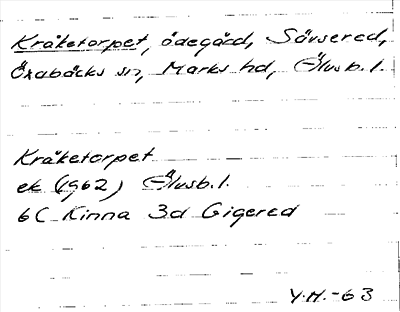 Kråketorpet, ödegård, Sävsered,
Öxabäcks sn, Marks hd, Älvsb. l.
Kråketorpet
ek (1962) Älvsb. l.
6C Kinna 3d Gigered
Y.M.-63